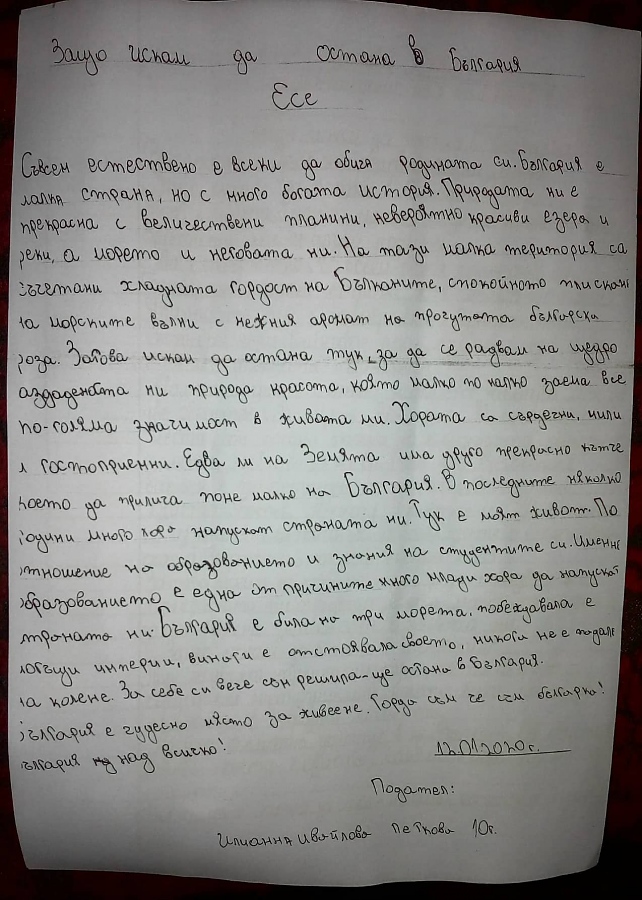 Защо искам да остана в България
Есе
Съвсем естествено е всеки да обича родината си. България е
малка страна, но с много богата история. Природата ни е
прекрасна с величествени планини, невероятно красиви езера и
реки, а морето и неговата ни. На тази малка територия са
съчетани хладната гордост на Балканите, спокойното плискане
на морските вълни с нежния аромат на прочутата българска
роза. Затова искам да остана тук, за да се радвам на щедро
раздадената ни природа красота, която малко по малко заема все
по-голяма значимост в живота ми. Хората са сърдечни, мили
и гостоприемни. Едва ли на Земята има друго прекрасно кътче
което да прилича поне малко на България. В последните няколко
години много хора напускат страната ни. Тук е моят живот. По
отношение на образованието и знания на студентите си. Именно
образованието е една от причините много млади хора да напускат
страната ни. България е била на три морета, побеждавала е
могъщи империи, винаги е отстоявала своето, никога не е падала
на колене. За себе си вече съм решила-ще остана в България.
България е чудесно място за живеене. Горда съм че съм българка!
България над всичко!
12.01.2020г.
Подател:
Илианна Ивайлова Петкова 10г.